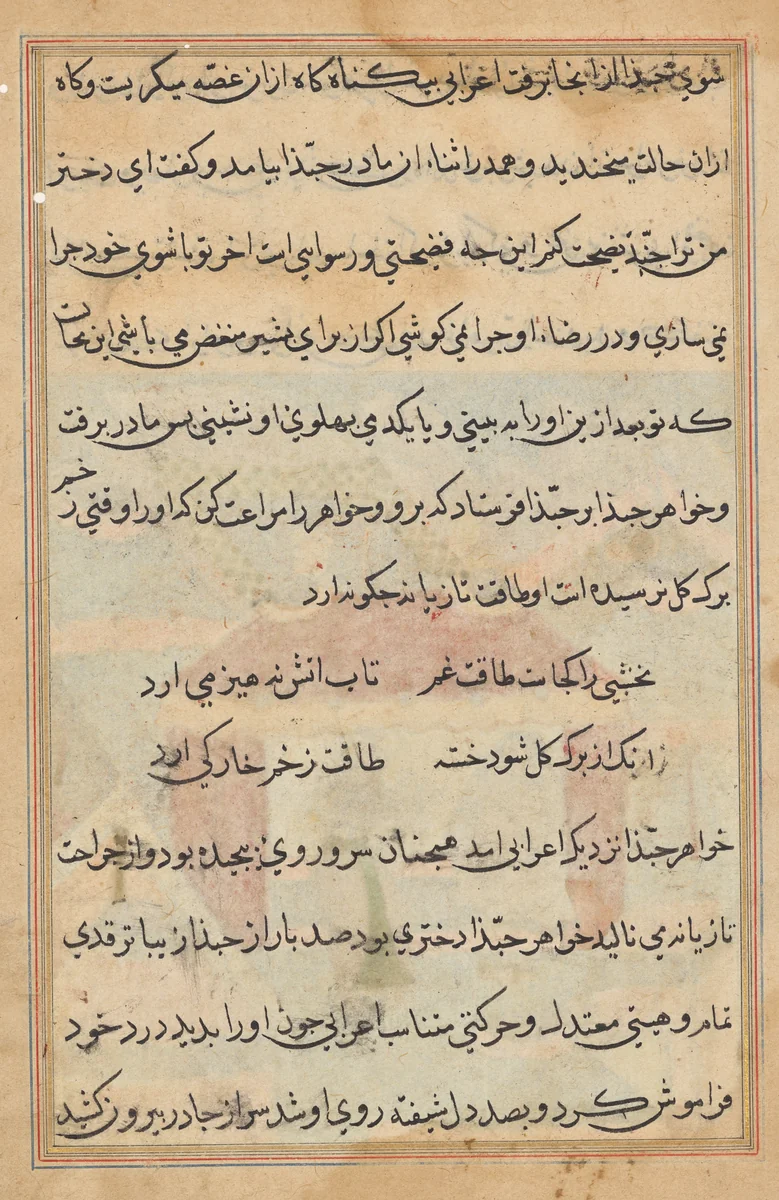 شوي حبذا از انجا برفت اعرابي بيكناه كاه ازان غصّه ميكريست و كاه
ازان حالت ميخنديد و همدر اثناء ان مادر حبّذا بيامد و كفت اي دختر
من ترا چند نصيحت كنم اين چه فضيحتي و رسوايي است اخر تو با شوي خود چرا
نمي سازي و در رضاء او چرا نمي كوشي اكر از براي بشير منغض مي باشي اين محالست
كه تو بعد ازين او را به بيني و يا يكدمي بهلوي او نشيني بس مادر برفت
و خواهر حبذا بر حبّذا فرستاد كه برو و خواهر را مراعت كن كه او را وقتي زخم
برك كل نرسيده است او طاقت تازيانه چكونه دارد
نخشبي را كجاست طاقت غم تاب اتش نه هيزمي ارد
انك از برك كل شود خسته طاقت زخم خار كي ارد
خواهر حبّذا نزديك اعرابي امد همچنان سر و روي بيچيده بود و از جراحت
تازيانه مي ناليد خواهر حبّذا دختري بود صد بار از حبذا زيباتر قدي
تمام و هيتي معتدل و حركتي متناسب اعرابي چون او را بديد درد خود
فراموش كرد و بصد دل شيفته روي او شد سر از چادر بيرون كشيد